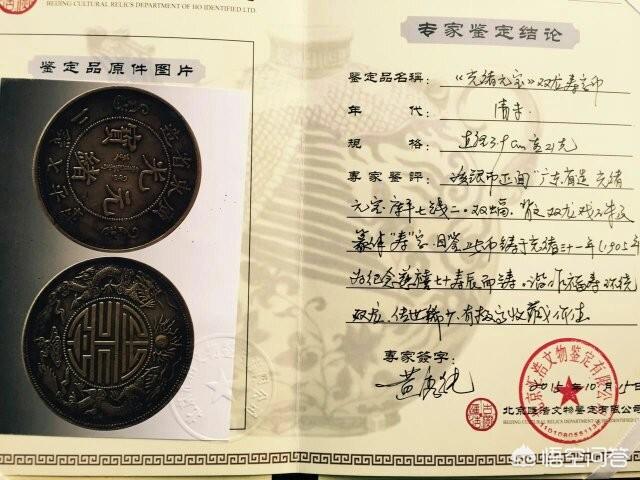 BEIJING CULTURAL RELICS DEPARTMENT OF HO IDENTIFIED LTD.
鉴定品原件图片
光緒元寶
专家鉴定结论
鉴定品名稱：《光绪元宝》双龙寿字币
年 代：清末
規 格：直径3.9cm 重21克
專家鉴評：该银币正面"广东省造 光绪
元宝库平七钱二"双蝠. 背双龙戏珠及
篆体"寿"字. 此币铸于光绪三十一年(1905年
为纪念慈禧七十寿辰而铸. 福寿环绕
双龙. 传世稀少. 有极高收藏价值
專家簽字：
2015年10月15日
北京匯浩文物鉴定有限公司
BEIJING CULTURAL RELICS DEPARTMENT OF HO IDENTIFIED LTD.
1101080551135
悟空问答